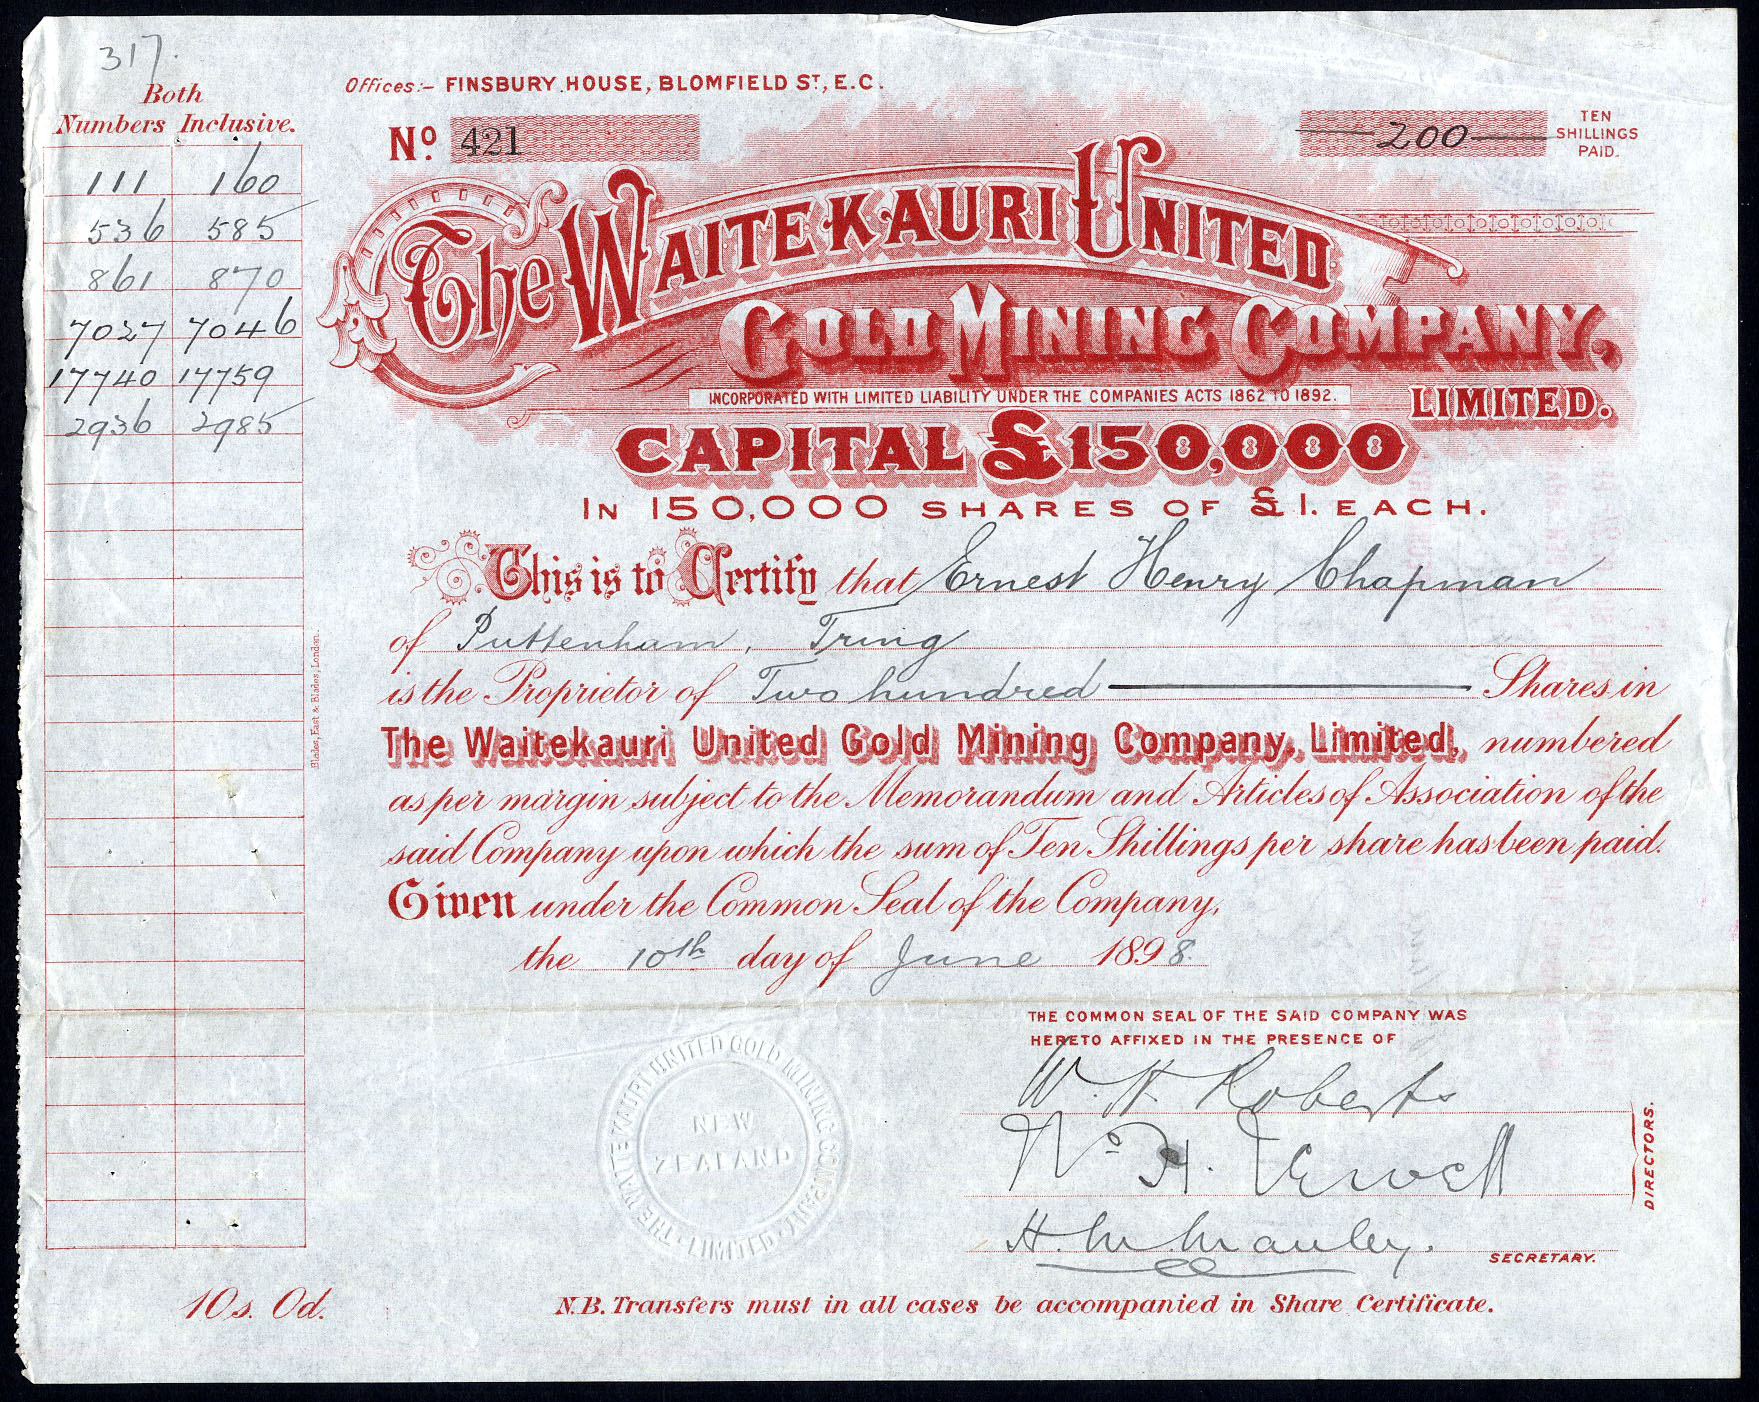 317.
Both
Numbers Inclusive.
111 160
536 585
861 870
7027 7046
17740 17759
2936 2985
Offices:- FINSBURY HOUSE, BLOMFIELD ST, E.C.
No. 421
200
TEN
SHILLINGS
PAID.
The WAITEKAURI UNITED
GOLD MINING COMPANY,
INCORPORATED WITH LIMITED LIABILITY UNDER THE COMPANIES ACTS 1862 TO 1892.
LIMITED.
CAPITAL £150,000
IN 150,000 SHARES OF £1. EACH.
This is to Certify that Ernest Henry Chapman
of Puttenham, Tring
is the Proprietor of Two hundred Shares in
The Waitekauri United Gold Mining Company, Limited, numbered
as per margin subject to the Memorandum and Articles of Association of the
said Company upon which the sum of Ten Shillings per share has been paid.
Given under the Common Seal of the Company,
the 10th day of June 1898.
Blades, East & Blades, London.
THE COMMON SEAL OF THE SAID COMPANY WAS
HERETO AFFIXED IN THE PRESENCE OF
W. H. Roberts
Wm H.
DIRECTORS.
H. M. Manley.
SECRETARY.
THE WAITEKAURI UNITED GOLD MINING COMPANY LIMITED
NEW
ZEALAND
10s. 0d.
N.B. Transfers must in all cases be accompanied in Share Certificate.